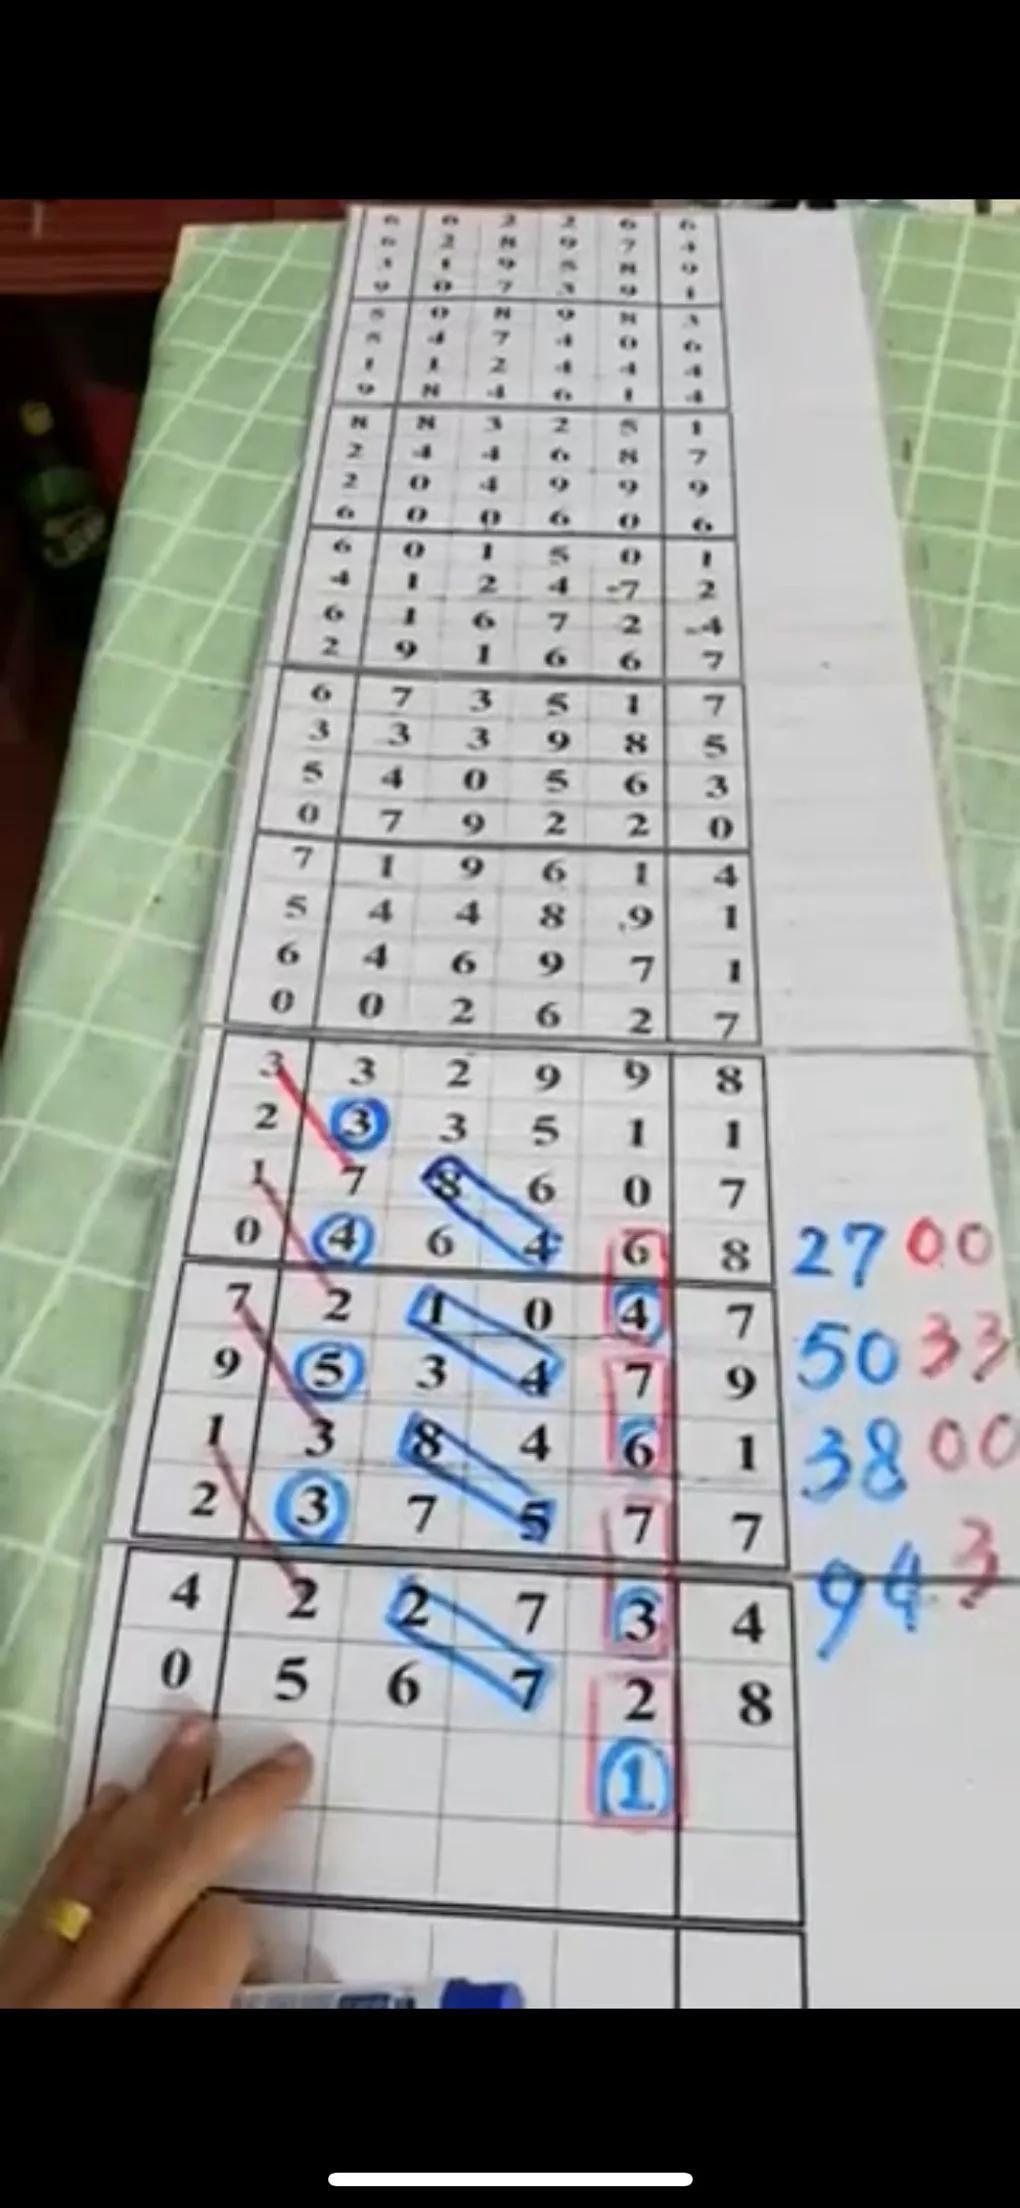 6 6 2 2 6 6
6 2 8 9 7 4
3 1 9 5 8 9
9 0 7 3 9 1
5 0 8 9 8 3
5 4 7 4 0 6
1 1 2 4 4 4
9 8 4 6 1 4
8 8 3 2 5 1
2 4 4 6 8 7
2 0 4 9 9 9
6 0 0 6 0 6
6 0 1 5 0 1
4 1 2 4 7 2
6 1 6 7 2 4
2 9 1 6 6 7
6 7 3 5 1 7
3 3 3 9 8 5
5 4 0 5 6 3
0 7 9 2 2 0
7 1 9 6 1 4
5 4 4 8 9 1
6 4 6 9 7 1
0 0 2 6 2 7
3 3 2 9 9 8
2 3 3 5 1 1
1 7 8 6 0 7
0 4 6 4 6 8 2700
7 2 1 0 4 7 5033
9 5 3 4 7 9
1 3 8 4 6 1 3800
2 3 7 5 7 7
4 2 2 7 3 4 943
0 5 6 7 2 8
1